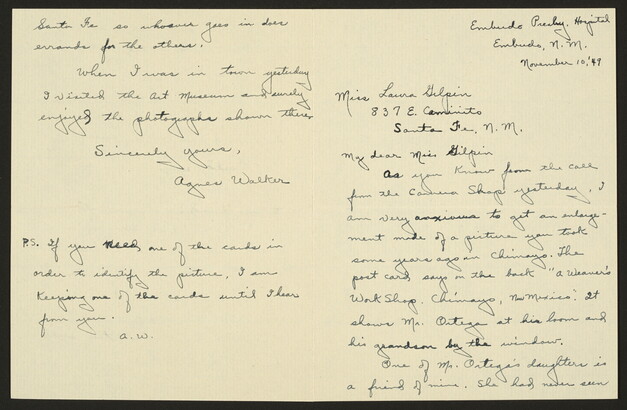 Embudo Presby. Hospital
Embudo, N.M.
November 10, '49
Miss Laura Gilpin
837 E. Caminito
Santa Fe, N.M.
My dear Miss Gilpin
As you know from the call
from the Camera Shop yesterday, I
am very anxious to get an enlarge-
ment made of a picture you took
some years ago in Chimayo. The
post card says on the back "A Weaver's
Work Shop, Chimayo, New Mexico." It
shows Mr. Ortega at his loom and
his grandson by the window.
One of Mr. Ortega's daughters is
a friend of mine. She had never seen
Santa Fe so whoever goes in does
errands for the others.
When I was in town yesterday
I visited the Art Museum and surely
enjoyed the photographs shown there.
Sincerely yours,
Agnes Walker
P.S. If you need one of the cards in
order to identify the picture, I am
keeping one of the cards until I hear
from you.
A.W.